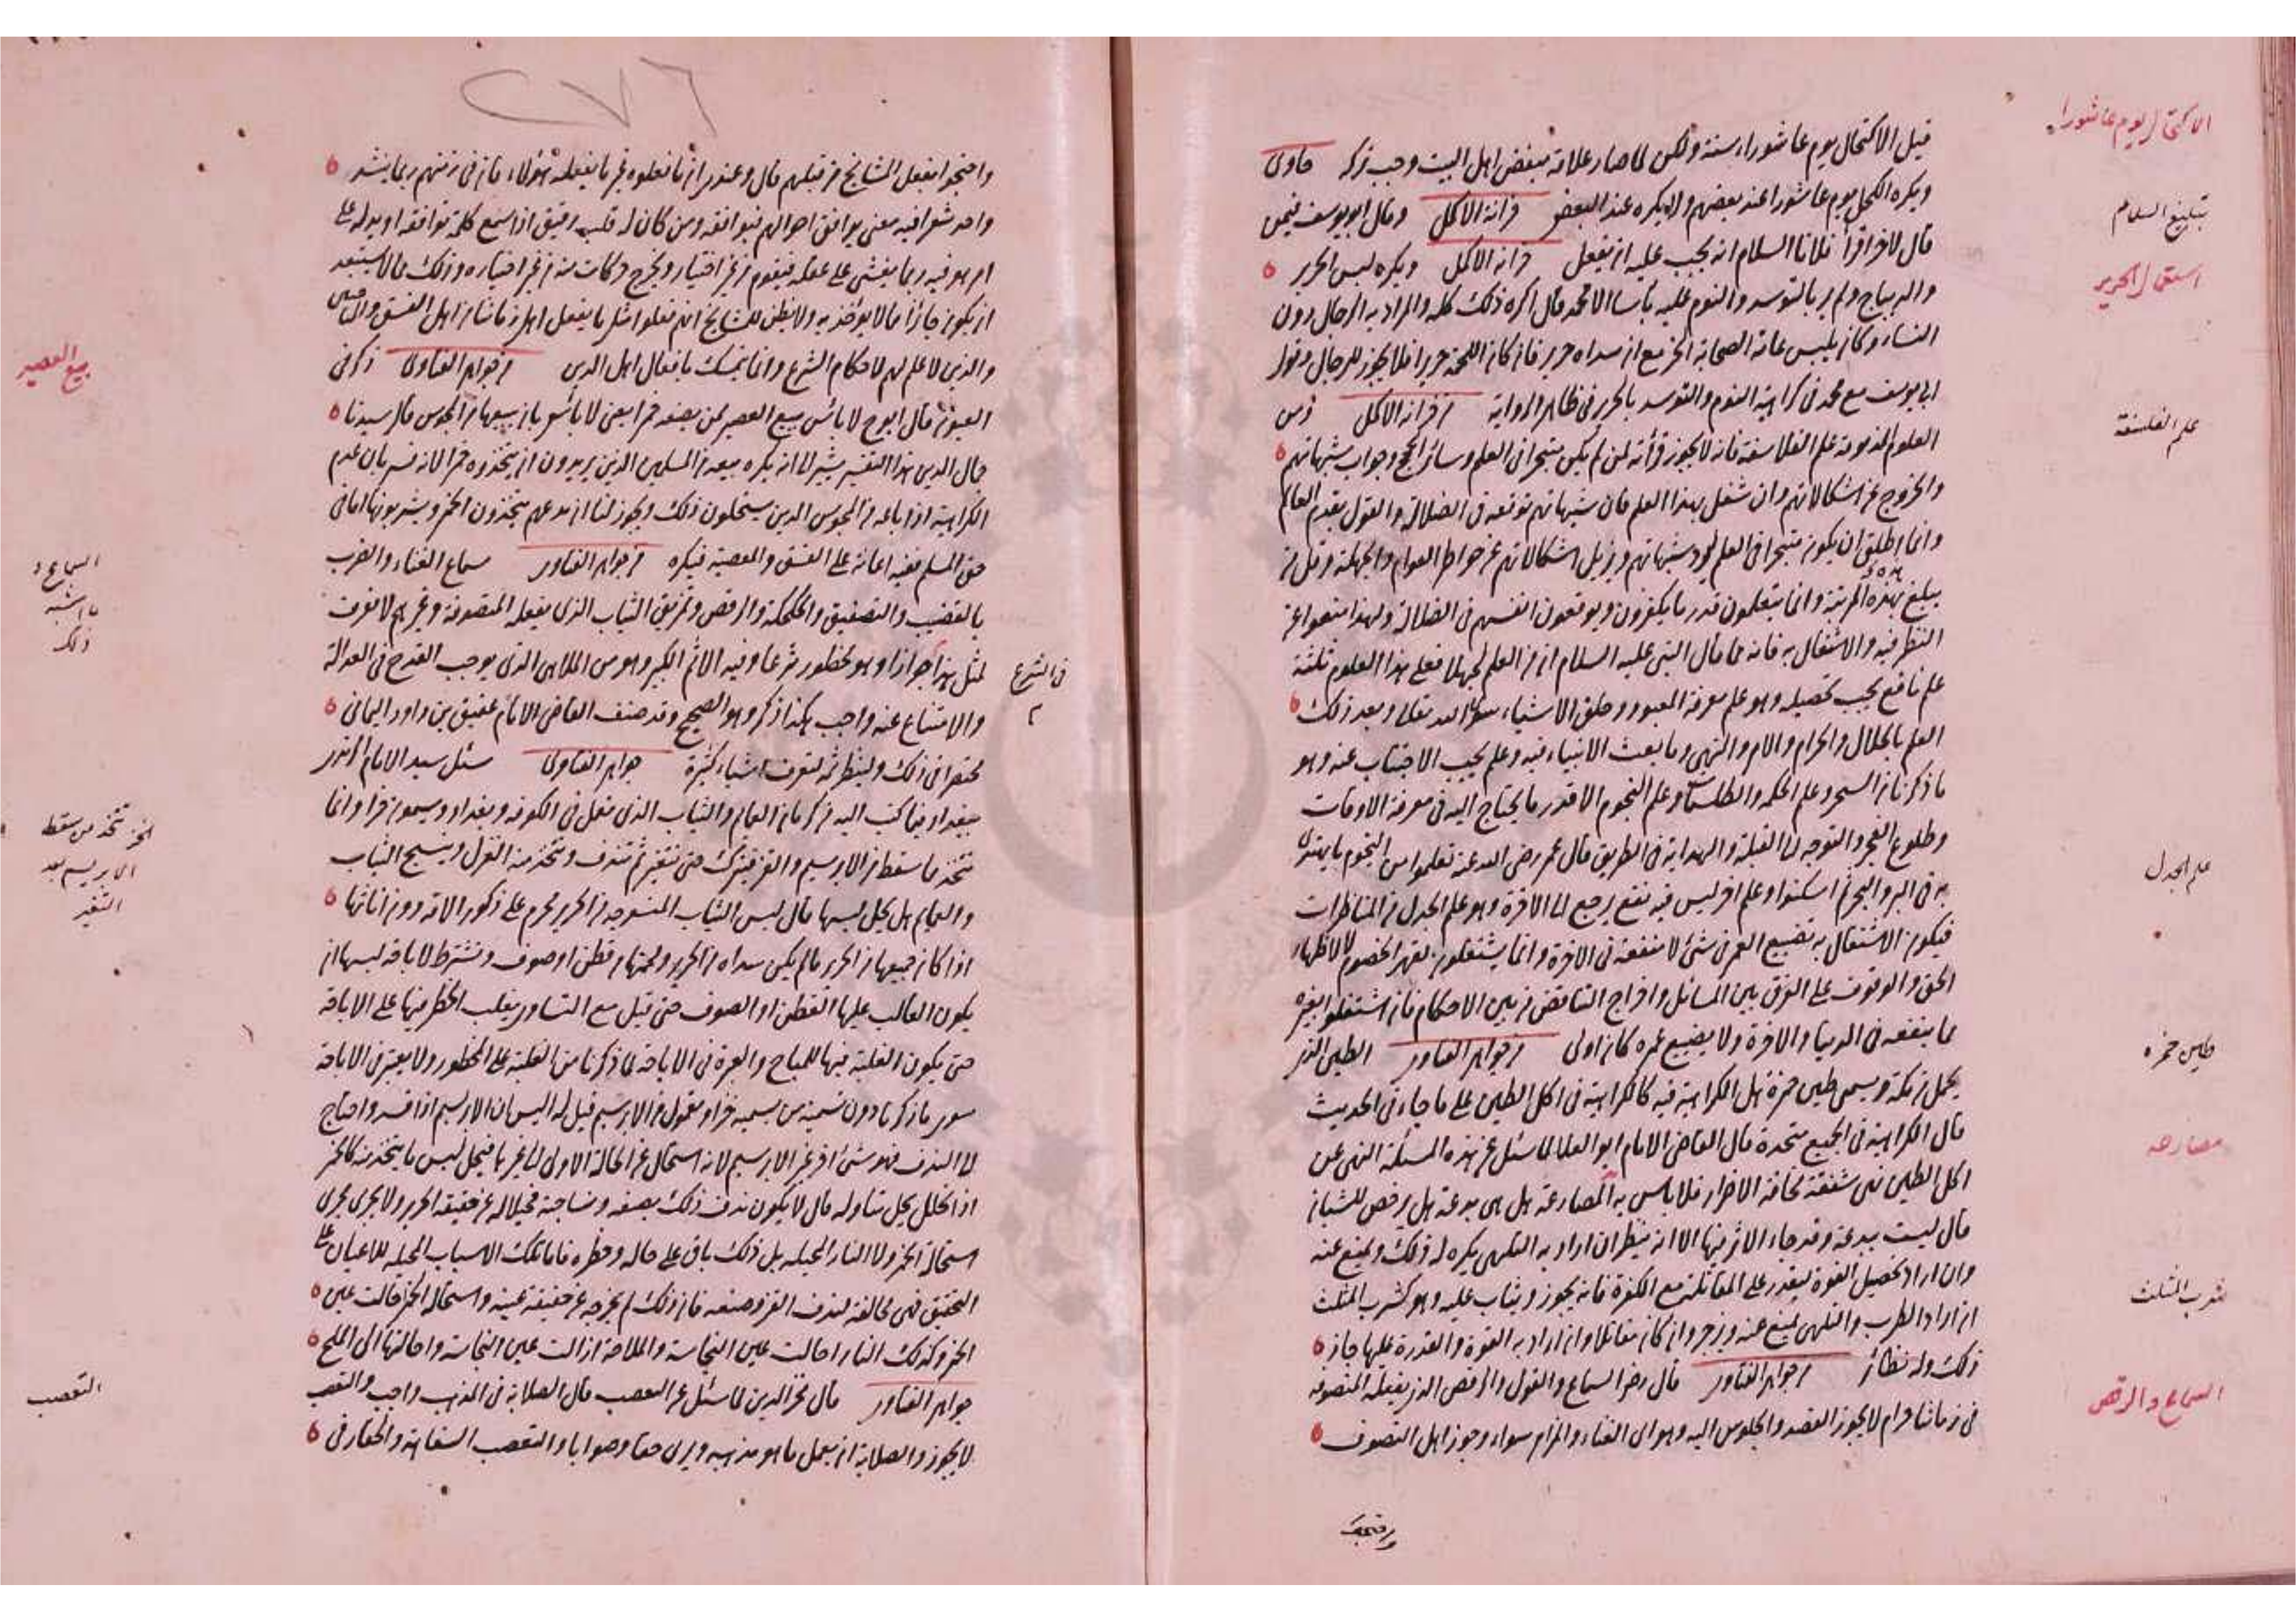 الاكتحال يوم عاشوراء
تبليغ السلام
استعمال الحرير
علم الفلسفة
علم الجدل
طين حمزه
مصارعه
شرب المثلث
السماع والرقص
قيل الاكتحال يوم عاشوراء سنة ولكن لما صار علامة لبغض اهل البيت وجب تركه حاوى
ويكره الكحل يوم عاشورا عند بعضهم ولا يكره عند البعض خزانة الاكمل وقال ابو يوسف فيمن
قال لاخر اقرأ فلانا السلام انه يجب عليه ان يفعل خزانة الاكمل ويكره لبس الحرير
والديباج ولم ير بالتوسد والنوم عليه بأسا الا محمد قال اكره ذلك كله والمراد به الرجال دون
النساء وكان يلبس عامة الصحابة الخز مع ان سداه حرير فان كان اللحمة حريرا فلا يجوز للرجال وقول
ابي يوسف مع محمد في كراهية النوم والتوسد بالحرير في ظاهر الرواية من خزانة الاكمل ومن
العلوم المذمومة علم الفلاسفة فانه لا يجوز قرأته لمن لم يكن متبحرا في العلم وسائر الحجج وجواب شبهاتهم
والخروج عن اشكالاتهم وان شغل بهذا العلم فان شبهاتهم توقعه في الضلالة والقول بقدم العالم
وانما اطلق ان يكون متبحرا في العلم ليرد شبهاتهم ويزيل اشكالاتهم عن خواطر العوام والجهلة وقل من
يبلغ هذه المرتبة وانما يتعلمون قدر ما يكفرون ويوقعون انفسهم في الضلالة ولهذا منعوا عن
النظر فيه والاشتغال به فانه مما قال النبي عليه السلام ان من العلم لجهلا فعلى هذا العلوم ثلثة
علم نافع يجب تحصيله وهو علم معرفة المعبود وخلق الاشياء سوى الله تعالى وبعد ذلك
العلم بالحلال والحرام والامر والنهي وما بعث الانبياء فيه وعلم يجب الاجتناب عنه وهو
ما ذكرنا من السحر وعلم الحكمة والطلسمات وعلم النجوم الا قدر ما يحتاج اليه في معرفة الاوقات
وطلوع الفجر والتوجه الى القبلة والهداية في الطريق قال عمر رضى الله عنه تعلموا من النجوم ما يهتدى
به في البر والبحر ثم اسكتوا وعلم اخر ليس فيه نفع يرجع الى الاخرة وهو علم الجدل في المناظرات
فيكون الاشتغال به تضييع العمر في شئ لا منفعة في الاخرة وانما يشتغلون به لقهر الخصوم لا لاظهار
الحق والوقوف على الفرق بين المسائل واخراج التناقض من بين الاحكام فان اشتغلوا بغيره
مما ينفعه في الدنيا والاخرة ولا يضيع عمره كان اولى من جواهر الفتاوى الطين الذى
يحمل من مكة ويسمى طين حمزة هل الكراهية فيه كالكراهية في اكل الطين على ما جاء في الحديث
قال الكراهية في الجميع متحدة قال القاضي الامام ابو العلا لما سئل عن هذه المسئلة النهى عن
اكل الطين نهى شفقة لمخافة الاضرار فلا بأس به المصارعة هل هى بدعة هل يرخص للشبان
قال ليست ببدعة وقد جاء الاثر فيها الا انه ينظر ان اراد به التلهى يكره له ذلك ويمنع عنه
وان اراد تحصيل القوة ليقدر على المقاتلة مع الكفرة فانه يجوز ويثاب عليه وهو كشرب المثلث
ان اراد الطرب والتلهى يمنع عنه ويزجر وان كان مقاتلا وان اراد به القوة والقدرة عليها جاز
ذلك وله نظائر من جواهر الفتاوى قال رضى السماع والقول والرقص الذى يفعله المتصوفة
في زماننا حرام لا يجوز القصد والجلوس اليه وهو الى الغناء والمزامر سواء وجوز اهل التصوف
واحتجوا
بيع العصير
السماع و
ما اشبه
ذلك
الخز تتخذ من سقط
الابريسم بعد
التغير
التعصب
٢٧٦
واحتجوا بفعل المشايخ من قبلهم قال وعندى ان ما فعلوه غير ما يفعله هؤلاء فان في زمنهم ربما ينشد
واحد شعرا فيه معنى يوافق احوالهم فيوافقه ومن كان له قلب رقيق اذا سمع كلمة توافقه او يوله على
امر هو فيه ربما يغشى على عقله فيقوم من غير اختيار ويخرج حركات منه من غير اختياره وذلك مما لا يستبعد
ان يكون جائزا مما لا يؤاخذ به ولا يظن للمشايخ انهم فعلوا مثل ما يفعل اهل زماننا من اهل الفسق
والذين لا علم لهم لاحكام الشرع وانما يتمسك بافعال اهل الدين من جواهر الفتاوى ذكر في
العيون قال ابو ح لا بأس ببيع العصير لمن يصنعه خمرا يعنى لا بأس بان يبيعها من المجوس قال سيدنا
جمال الدين هذا التفسير يشير الى انه يكره بيعه من المسلمين الذين يريدون ان يتخذوه خمرا لانه فسر بان عدم
الكراهية اذا باعه من المجوس الذين يستحلون ذلك ويجوز لنا ان ندعهم يتخذون الخمر ويشربونها اما في
حق المسلم ففيه اعانة على الفسق والمعصية فيكره من جواهر الفتاوى سماع الغناء والضرب
بالقضيب والتصفيق والرقص وتمزيق الثياب الذى يفعله المتصوفة وغيرهم لا نعرف
لمثل هذا جوازا وهو محظور شرعا وفيه الاثم الكبير وهو من الملاهى الذى يوجب القدح في العدالة
في الشرع
والامتناع عنه واجب هكذا ذكر وهو الصحيح وقد صنف القاضى الامام عتيق بن داود اليمانى
مختصرا في ذلك ولينظر ثمه لتعرف اشياء كثيرة جواهر الفتاوى سئل سيد الامام
ببغداد فيما كتب اليه من كرمان العمايم والثياب الذى تعمل في الكوفة وبغداد ويسمون خزا وانما
تتخذ ما سقط من الابريسم والقز فيترك حتى تتغير ثم تندف ويتخذ منه الغزل وينسج الثياب
والعمايم هل يحل لبسها قال لبس الثياب المنسوجة من الحرير محرم على ذكور الامة دون اناثها
اذا كان جميعها من الحرير ما لم يكن سداه من الحرير ولحمتها من قطن او صوف ونشترط لاباحة لبسها ان
يكون الغالب عليها القطن او الصوف حتى قيل مع التساوى يغلب الحظر فيها على الاباحة
حتى يكون الغلبة فيها للمباح والعبرة في الاباحة لما ذكرنا من الغلبة على المحظور ولا يعتبر في الاباحة
سوى ما ذكرنا دون تسمية من يسميه خزا ومعمول من الابريسم قيل له اليس ان الابريسم اذا فسد واحتاج
الى الندف فهو شئ اخر غير الابريسم لانه استحال عن الحالة الاولى الى غيرها فيحل لبس ما يتخذ منه كالخمر
اذا تخلل يحل تناوله قال لا يكون ندف ذلك بصنعه ونساجته محيلا له عن حقيقة الحرير ولا يجرى مجرى
استحالة الخمر ولا النار المحيلة بل ذلك باق على حاله وحظره فاما تلك الاسباب المحيلة للاعيان على
التحقيق فهى مخالفة لندف القز وصنعه فان ذلك لم يخرجه عن حقيقة عينه واستحالة الخمر حالت عين
الخمر وكذلك النار احالت عين النجاسة والملاحة ازالت عين النجاسة واحالتها الى الملح
جواهر الفتاوى قال فخر الدين لما سئل عن التعصب قال الصلابة في المذهب واجب والتعصب
لا يجوز والصلابة ان يعمل ما هو مذهبه ويرى حقا وصوابا والتعصب السفاهة والحقار في